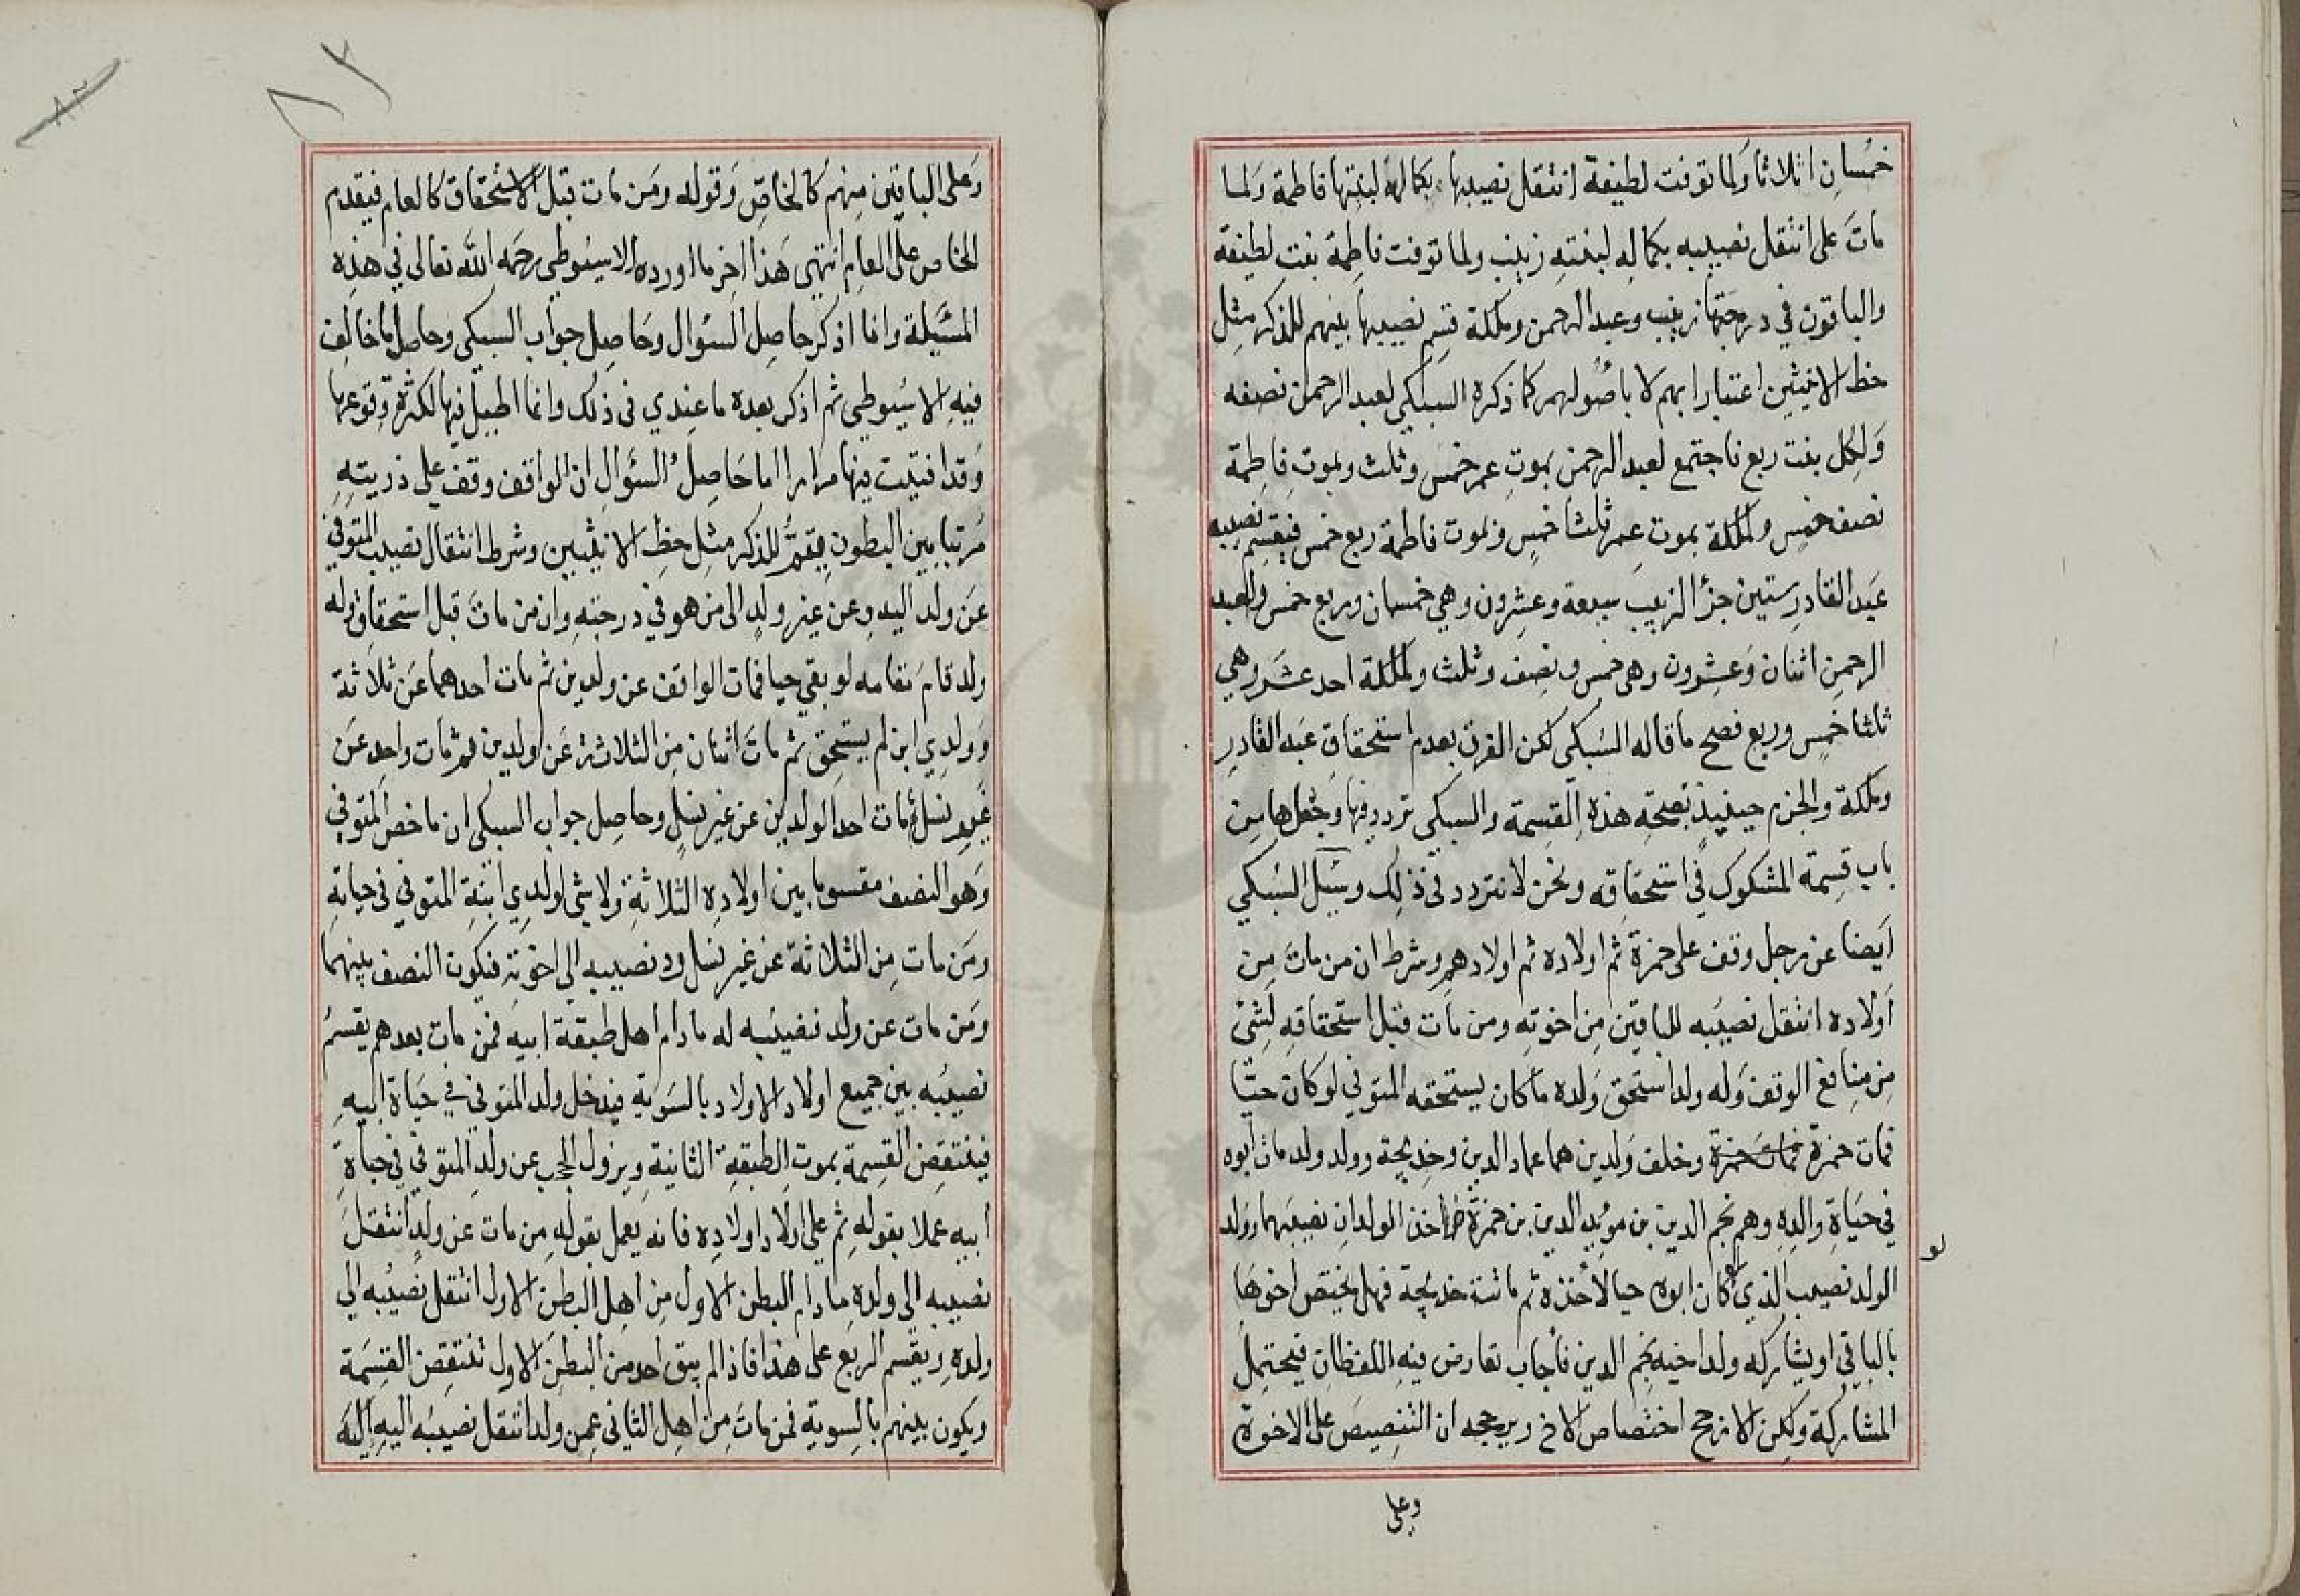 خمسان اثلاثا ولما توفت لطيفة انتقل نصيبها بكماله لبنتها فاطمة ولما
مات على انتقل نصيبه بكماله لبنته زينب ولما توفت فاطمة بنت لطيفة
والباقون في درجتها زينب وعبد الرحمن وملكة قسم نصيبها بينهم للذكر مثل
حظ الانثيين اعتبارا بهم لا باصولهم كما ذكره السبكي لعبد الرحمن نصفه
ولكل بنت ربع فاجتمع لعبد الرحمن بموت عمر خمس وثلث وبموت فاطمة
نصف خمس ولملكة بموت عمر ثلثا خمس وبموت فاطمة ربع خمس فيقسم نصيبه
عبد القادر ستين جزأ لزينب سبعة وعشرون وهي خمسان وربع خمس ولعبد
الرحمن اثنان وعشرون وهي خمس ونصف وثلث ولملكة احد عشر وهي
ثلثا خمس وربع فصح ما قاله السبكي لكن الفرق بعدم استحقاق عبد القادر
وملكة والجزم حينيذ بصحة هذه القسمة والسبكي تردد فيها وجعلها من
باب قسمة المشكوك في استحقاقه ونحن لا نتردد في ذلك وسيل السبكي
ايضا عن رجل وقف على حمزة ثم اولاده ثم اولادهم وشرط ان من مات من
اولاده انتقل نصيبه للباقين من اخوته ومن مات قبل استحقاقه لشئ
من منافع الوقف وله ولد استحق ولده ما كان يستحقه المتوفي لو كان حيا
فمات حمزة فمات حمزة وخلف ولدين هما عماد الدين وخديجة وولد ولد مات ابوه
في حياة والده وهم نجم الدين بن مؤيد الدين بن حمزة فاخذ الولدان نصيبهما وولد
الولد نصيب الذي كان ابوه حيا لاخذه ثم ماتت خديجة فهل يختص اخوها
لو
بالباقي او يشاركه ولد اخيه نجم الدين فأجاب تعارض فيه اللفظان فيحتمل
المشاركة ولكن الارجح اختصاص الاخ ويرجحه ان التنصيص على الاخوة
وعلى
٨٢
٨٢
وعلى الباقين منهم كالخاص وقوله ومن مات قبل الاستحقاق كالعام فيقدم
الخاص على العام انتهى هذا اخر ما اورده الاسيوطي رحمه الله تعالى في هذه
المسئلة وانا اذكر حاصل السؤال وحاصل جواب السبكي وحاصل ما خالف
فيه الاسيوطي ثم اذكر بعده ما عندي في ذلك وانما اطيل فيها لكثرة وقوعها
وقد افتيت فيها مرارا اما حاصل السؤال ان الواقف وقف على ذريته
مرتبا بين البطون للذكر مثل حظ الانثيين وشرط انتقال نصيب المتوفي
عن ولد اليه وعن غير ولد الى من هو في درجته وان من مات قبل استحقاق وله
ولد قام مقامه لو بقي حيا فمات الواقف عن ولدين ثم مات احدهما عن ثلاثة
وولدي ابن لم يستحق ثم مات اثنان من الثلاثة عن ولدين ثم مات واحد عن
غير نسل ثم مات احد الولدين عن غير نسل وحاصل جواب السبكي ان ما خص المتوفي
وهو النصف مقسوما بين اولاده الثلاثة ولا شئ لولدي ابنه المتوفي في حياته
ومن مات من الثلاثة عن غير نسل رد نصيبه الى اخوته فيكون النصف بينهما
ومن مات عن ولد فنصيبه له ما دام اهل طبقة ابيه فمن مات بعدهم يقسم
نصيبه بين جميع اولاد الاولاد بالسوية فيدخل ولد المتوفي في حياة ابيه
فتنتقض القسمة بموت الطبقة الثانية ويزول الحجب عن ولد المتوفي في حياة
ابيه عملا بقوله ثم على اولاد اولاده فانه يعمل بقوله من مات عن ولد انتقل
نصيبه الى ولده ما دام البطن الاول من اهل البطن الاول انتقل نصيبه الى
ولده ويقسم الربع على هذا فاذا لم يبق احد من البطن الاول تنتقض القسمة
ويكون بينهم بالسوية فمن مات من اهل الثاني عمن ولد انتقل نصيبه اليه